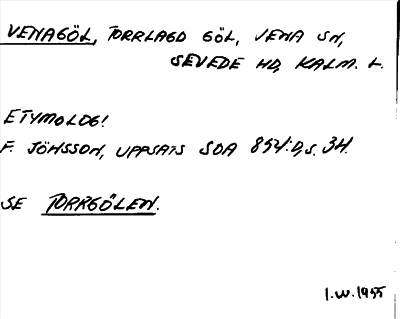 VENAGÖL, TORRLAGD GÖL, VENA SN,
SEVEDE HD, KALM. L.
ETYMOLOG!
F. JÖNSSON, UPPSATS SOA 854:D, S. 34.
SE TORRGÖLEN.
I.W. 1955